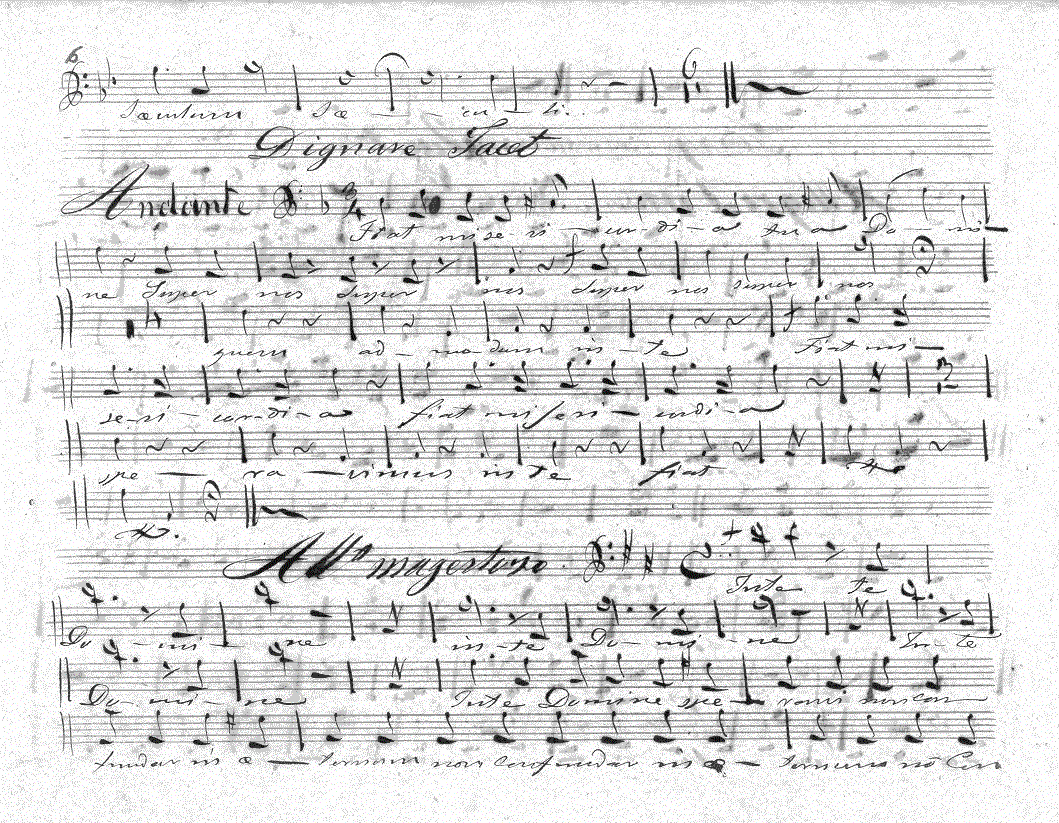 6
Sæculum Sæ - - cu - li.
Dignare Tacet
Andante 3/4
Fiat mi se - ri - cor - di - a tu a Do - mi -
ne Super nos Super nos Super nos Super nos
quem ad - mo dum in - te Fiat mi -
se - ri - cor - di - a fiat miseri - cordi - a
spe - ra - vimus in te fiat
Allo magestoso
Inte te
Do - mi - ne in - te Do - mi - ne In - te
Do - mi - ne Inte Domine spe - ravi non con
fundar in æ - ternum non confundar in æ - ternum nō Con